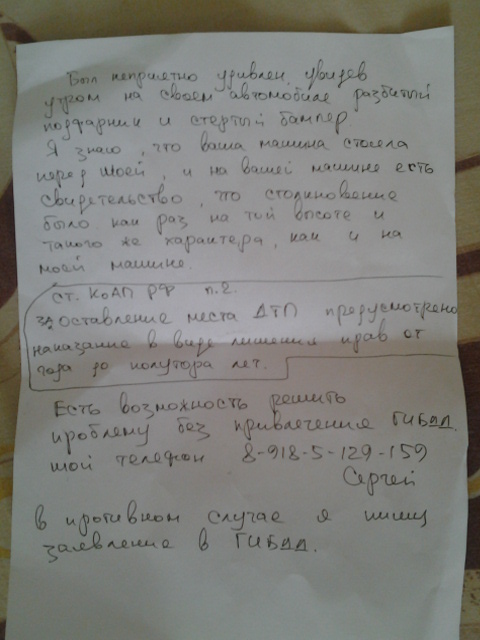 Был неприятно удивлен, увидев
утром на своем автомобиле разбитый
подфарник и стертый бампер.
Я знаю, что ваша машина стояла
перед моей, и на вашей машине есть
свидетельство, что столкновение
было как раз на той высоте и
такого же характера, как и на
моей машине.
ст. КоАП РФ п.2.
за оставление места ДТП предусмотрено
наказание в виде лишения прав от
года до полутора лет.
Есть возможность решить
проблему без привлечения ГИБДД.
мой телефон 8-918-5-129-159
Сергей
в противном случае я пишу
заявление в ГИБДД.